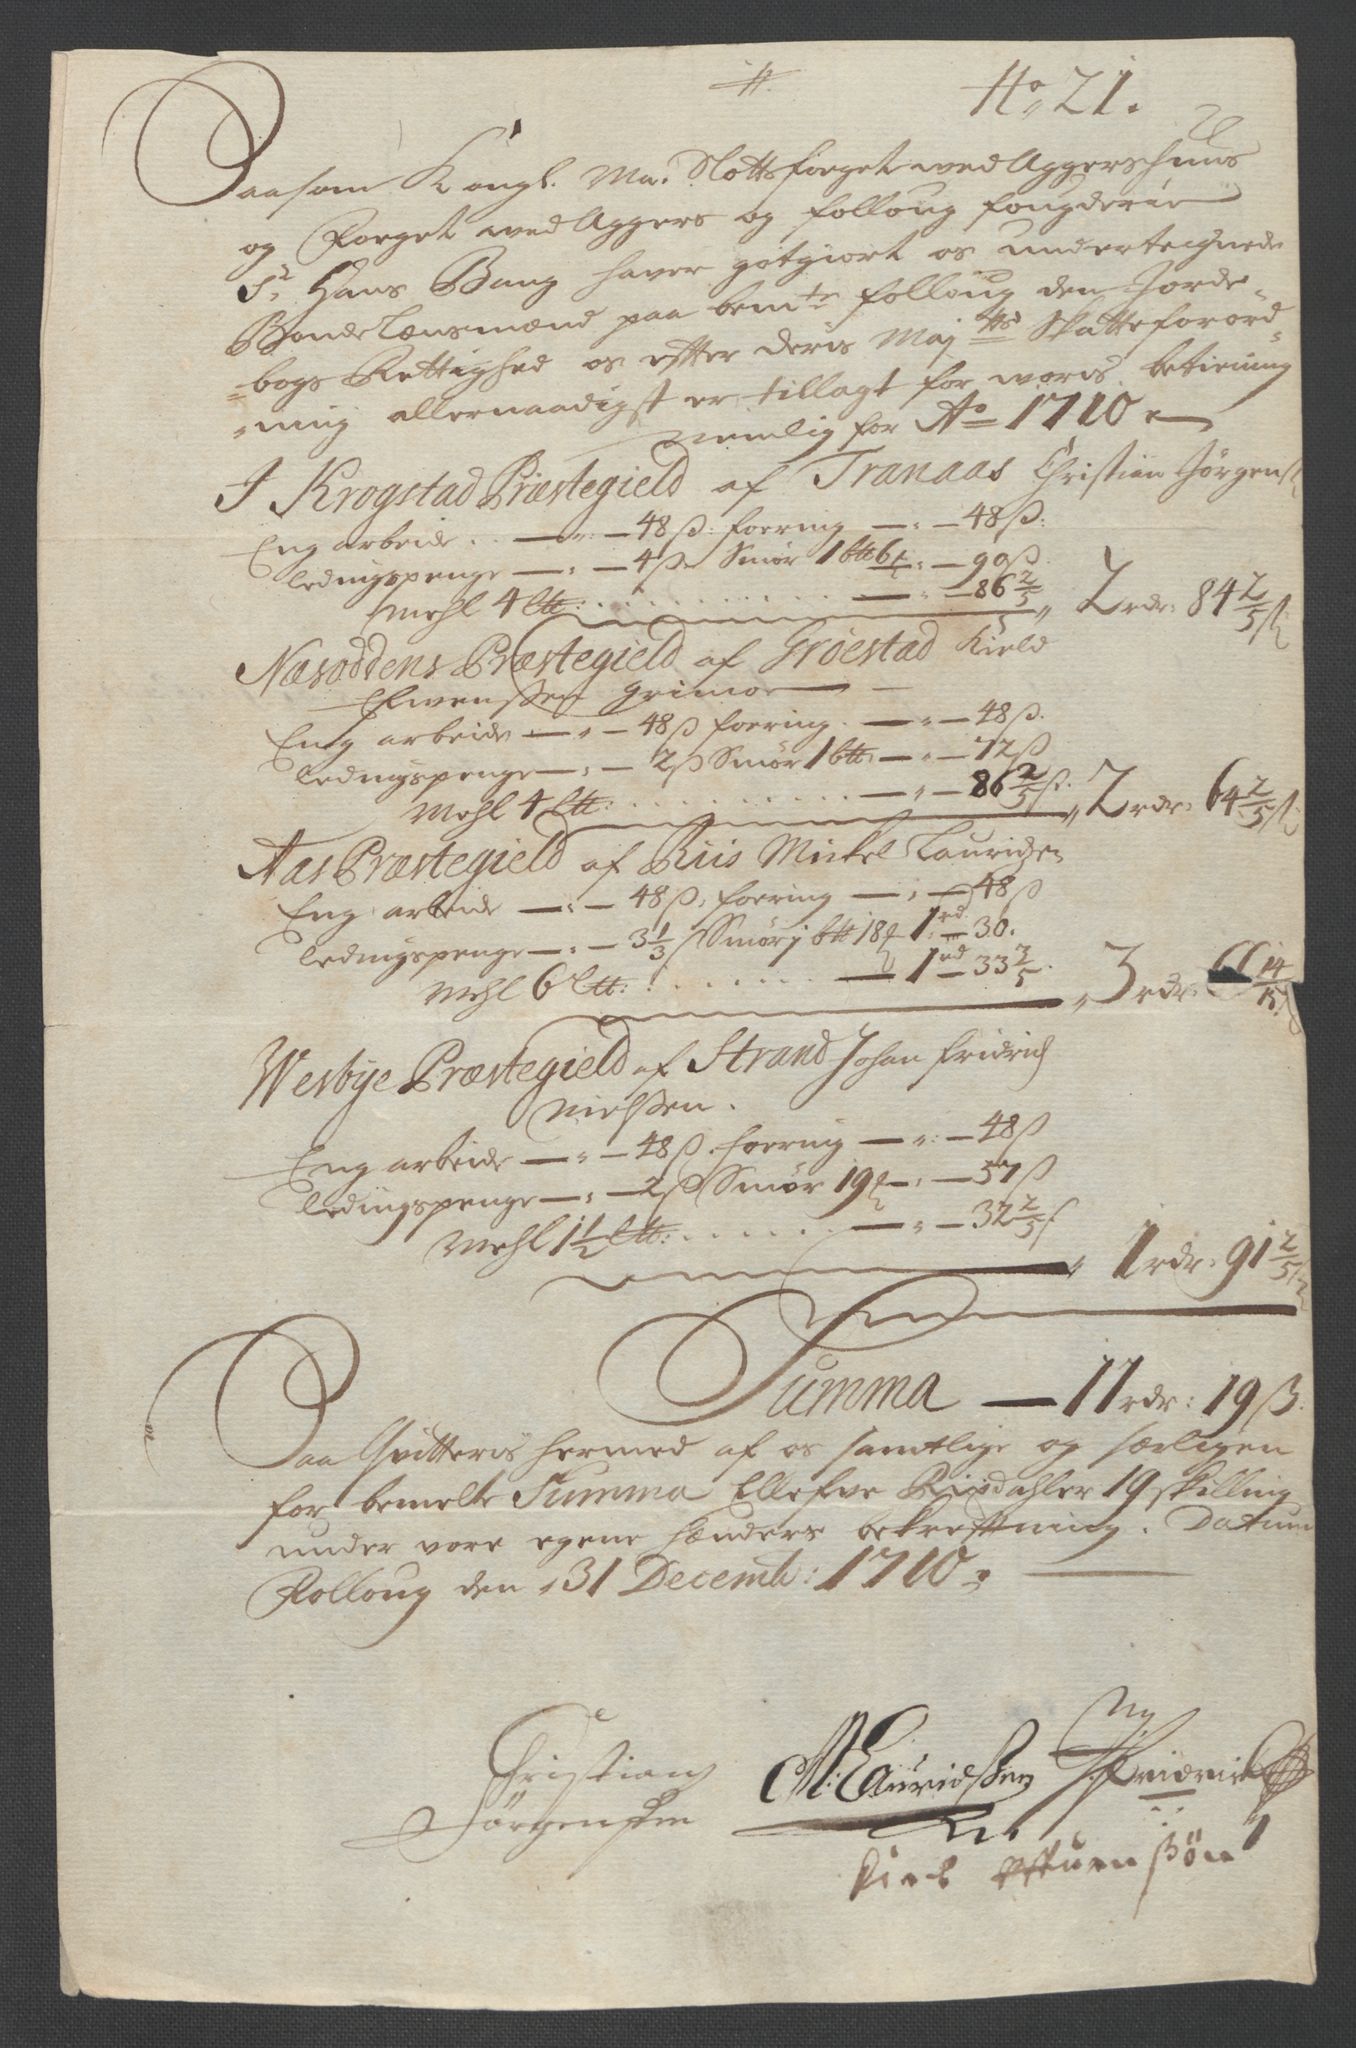 No 21.
Saasom Kongl. Ma. Slottsfoeget ved Aggerschuus
og Foeget ved Aggers og Folloug fougderie
Sr. Hans Bang haver gotgiort os undertegnede
Bonde Lænsmænd paa bemte Folloug den Jorde-
bogs Rettighed os efter deris Majtts Skatteforord-
ning allernaadigst er tillagt for woris betiening
nemlig for Ao 1710
I Krogstad Præstegield af Tranaas Christian Jørgens
Eng arbeide 48 ß. foering 48 ß:
ledingspenge 4 ß Smør 1 btt 6 90 ß
Mehl 4 ltt: 86 2/5 2 rdr: 84 2/5 ß
Næsoddens Præstegield af Groestad Kield
Ewenssen grimoe
Eng arbeide 48 ß foering 48 ß.
ledingspenge 2 ß Smør 1 btt 72 ß
Mehl 4 ltt: 86 2/5 ß. 2 rdr: 64 2/5 ß
Aas Præstegield af Riis Mickel Lauridsen
Eng arbeide 48 ß, foering 48 ß
ledingspenge 3 1/3 ß Smør j btt 18 1 rd 30.
Mehl 6 ltt: 1 rd 33 2/5. 3 rdr: 14/15
Wesbye Præstegield af Strand Johan Fridrich
Nielssen.
Eng arbeide 48 ß. foering 48 ß
ledingspenge 2 ß Smør 19 57 ß
Mehl 1 1/2 ltt: 32 2/5 ß
1 rdr: 91 2/5 ß
Summa 11 rdr: 19 ß.
Saa Qvitteris hermed af os samtlige og særligen
for bemelte Summa Ellefve Rixdahler 19 skilling
under vore egene hænders bekreftning. Datum
Folloug den 31 Decemb: 1710.
Christian Jørgenssen
M: Lauridssen
Fridrich